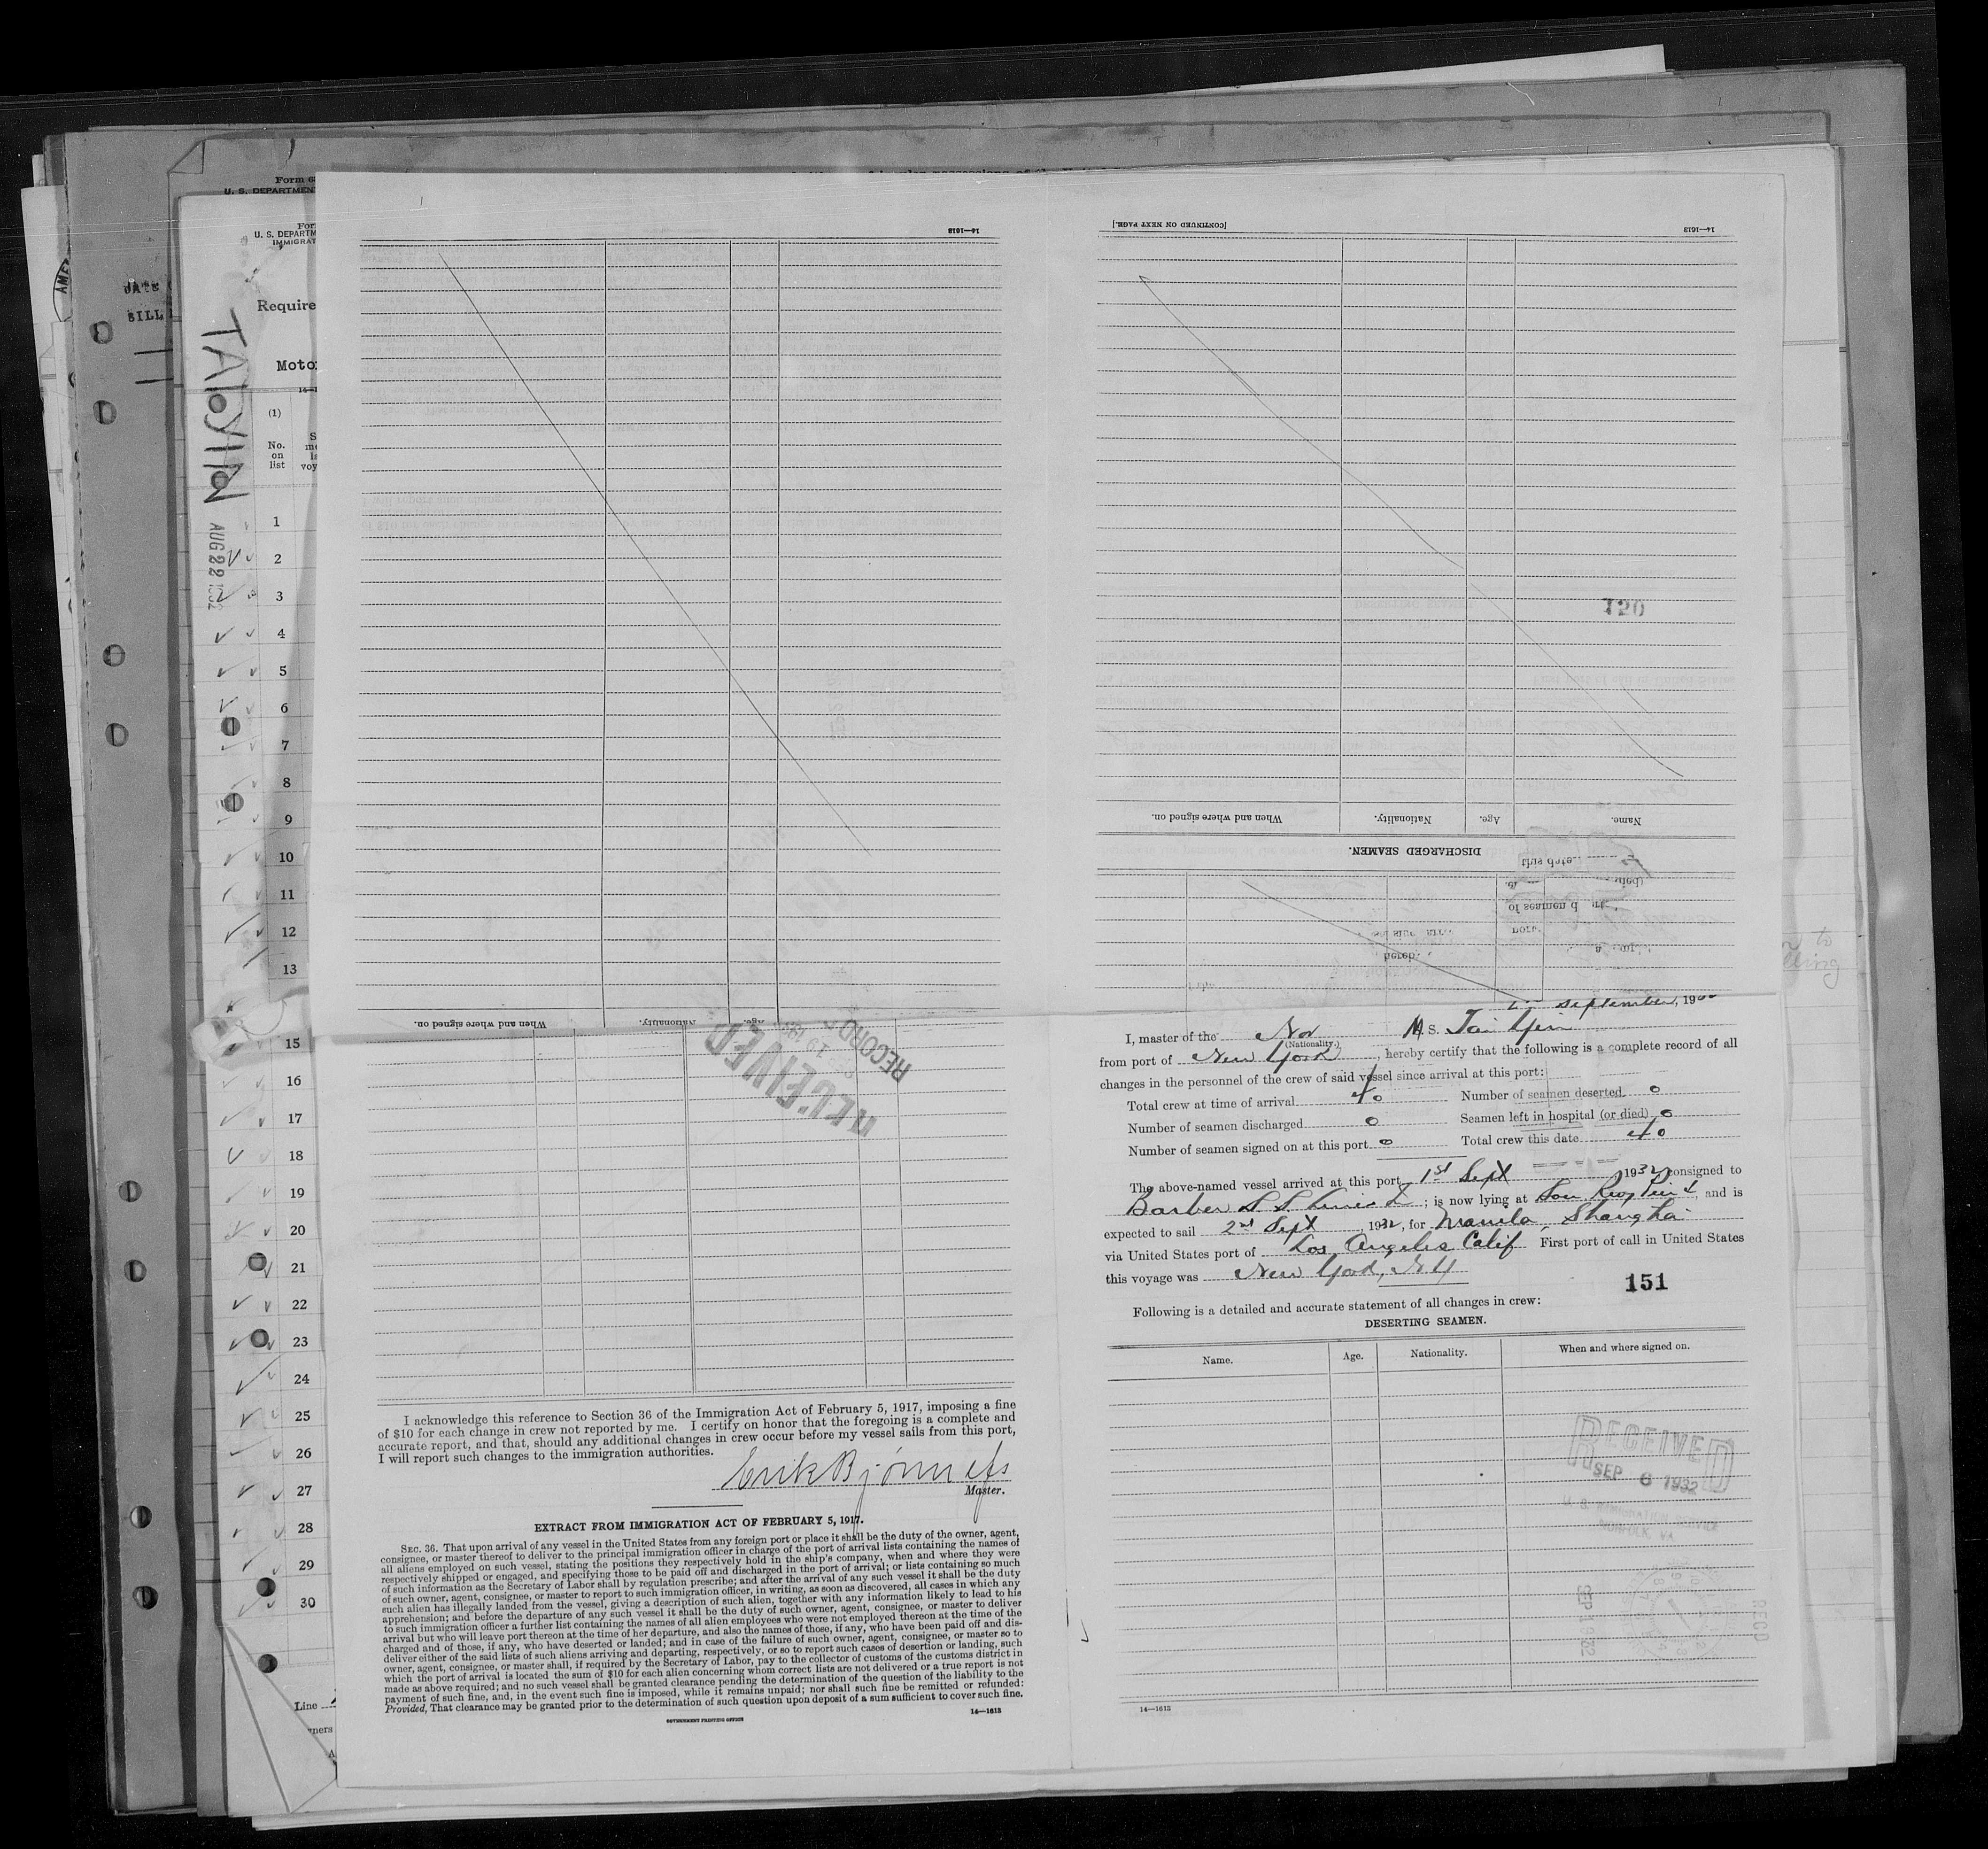 Form
U. S. DEPARTMENT
For
U. S. DEPARTM
IMMIGRAT
AME
DATE
BILL
Require
TAI YIN
Moto
(1)
No.
on
list
AUG 22 1932
1
2
3
4
5
6
7
8
9
10
11
12
13
15
16
17
18
19
20
21
22
23
24
25
26
27
28
29
30
Line
14—1613
When and where signed on.
Nationality.
Age.
RECEIVED
RECORD
I acknowledge this reference to Section 36 of the Immigration Act of February 5, 1917, imposing a fine
of $10 for each change in crew not reported by me. I certify on honor that the foregoing is a complete and
accurate report, and that, should any additional changes in crew occur before my vessel sails from this port,
I will report such changes to the immigration authorities.
Master.
EXTRACT FROM IMMIGRATION ACT OF FEBRUARY 5, 1917.
SEC. 36. That upon arrival of any vessel in the United States from any foreign port or place it shall be the duty of the owner, agent,
consignee, or master thereof to deliver to the principal immigration officer in charge of the port of arrival lists containing the names of
all aliens employed on such vessel, stating the positions they respectively hold in the ship's company, when and where they were
respectively shipped or engaged, and specifying those to be paid off and discharged in the port of arrival; or lists containing so much
of such information as the Secretary of Labor shall by regulation prescribe; and after the arrival of any such vessel it shall be the duty
of such owner, agent, consignee, or master to report to such immigration officer, in writing, as soon as discovered, all cases in which any
such alien has illegally landed from the vessel, giving a description of such alien, together with any information likely to lead to his
apprehension; and before the departure of any such vessel it shall be the duty of such owner, agent, consignee, or master to deliver
to such immigration officer a further list containing the names of all alien employees who were not employed thereon at the time of the
arrival but who will leave port thereon at the time of her departure, and also the names of those, if any, who have been paid off and dis-
charged and of those, if any, who have deserted or landed; and in case of the failure of such owner, agent, consignee, or master so to
deliver either of the said lists of such aliens arriving and departing, respectively, or so to report such cases of desertion or landing, such
owner, agent, consignee, or master shall, if required by the Secretary of Labor, pay to the collector of customs of the customs district in
which the port of arrival is located the sum of $10 for each alien concerning whom correct lists are not delivered or a true report is not
made as above required; and no such vessel shall be granted clearance pending the determination of the question of the liability to the
payment of such fine, and, in the event such fine is imposed, while it remains unpaid; nor shall such fine be remitted or refunded:
Provided, That clearance may be granted prior to the determination of such question upon deposit of a sum sufficient to cover such fine.
GOVERNMENT PRINTING OFFICE
14—1613
[CONTINUED ON NEXT PAGE.]
14—1613
120
When and where signed on.
Nationality.
Age.
Name.
DISCHARGED SEAMEN.
this date
of seamen
September, 19
I, master of the Nor M.S. Tai Yin
(Nationality.)
from port of New York, hereby certify that the following is a complete record of all
changes in the personnel of the crew of said vessel since arrival at this port:
Total crew at time of arrival 40 Number of seamen deserted 0
Number of seamen discharged 0 Seamen left in hospital (or died) 0
Number of seamen signed on at this port 0 Total crew this date 40
The above-named vessel arrived at this port 1st Sept 1932 consigned to
Barber S. S. Lines; is now lying at and is
expected to sail 2nd Sept, 1932, for Manila, Shanghai
via United States port of Los Angeles Calif First port of call in United States
this voyage was New York, N Y
151
Following is a detailed and accurate statement of all changes in crew:
DESERTING SEAMEN.
Name.
Age.
Nationality.
When and where signed on.
RECEIVED
SEP 6 1932
U. S. IMMIGRATION SERVICE
NORFOLK, VA
SEP 1932
REC'D
14—1613